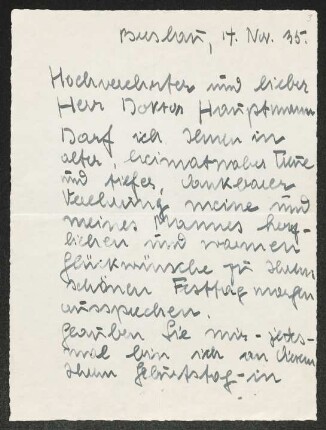 Breslau, 14. Nov. 35.
Hochverehrter und lieber
Herr Doktor Hauptmann
Darf ich Ihnen in
alter, heimatnaher Treue
und tiefer, dankbarer
Verehrung meine und
meines Mannes herz-
lichen und warmen
Glückwünsche zu Ihrem
schönen Festtag morgen
aussprechen.
Glauben Sie mir - jedes-
mal bin ich an diesem
Ihrem Geburtstag - in